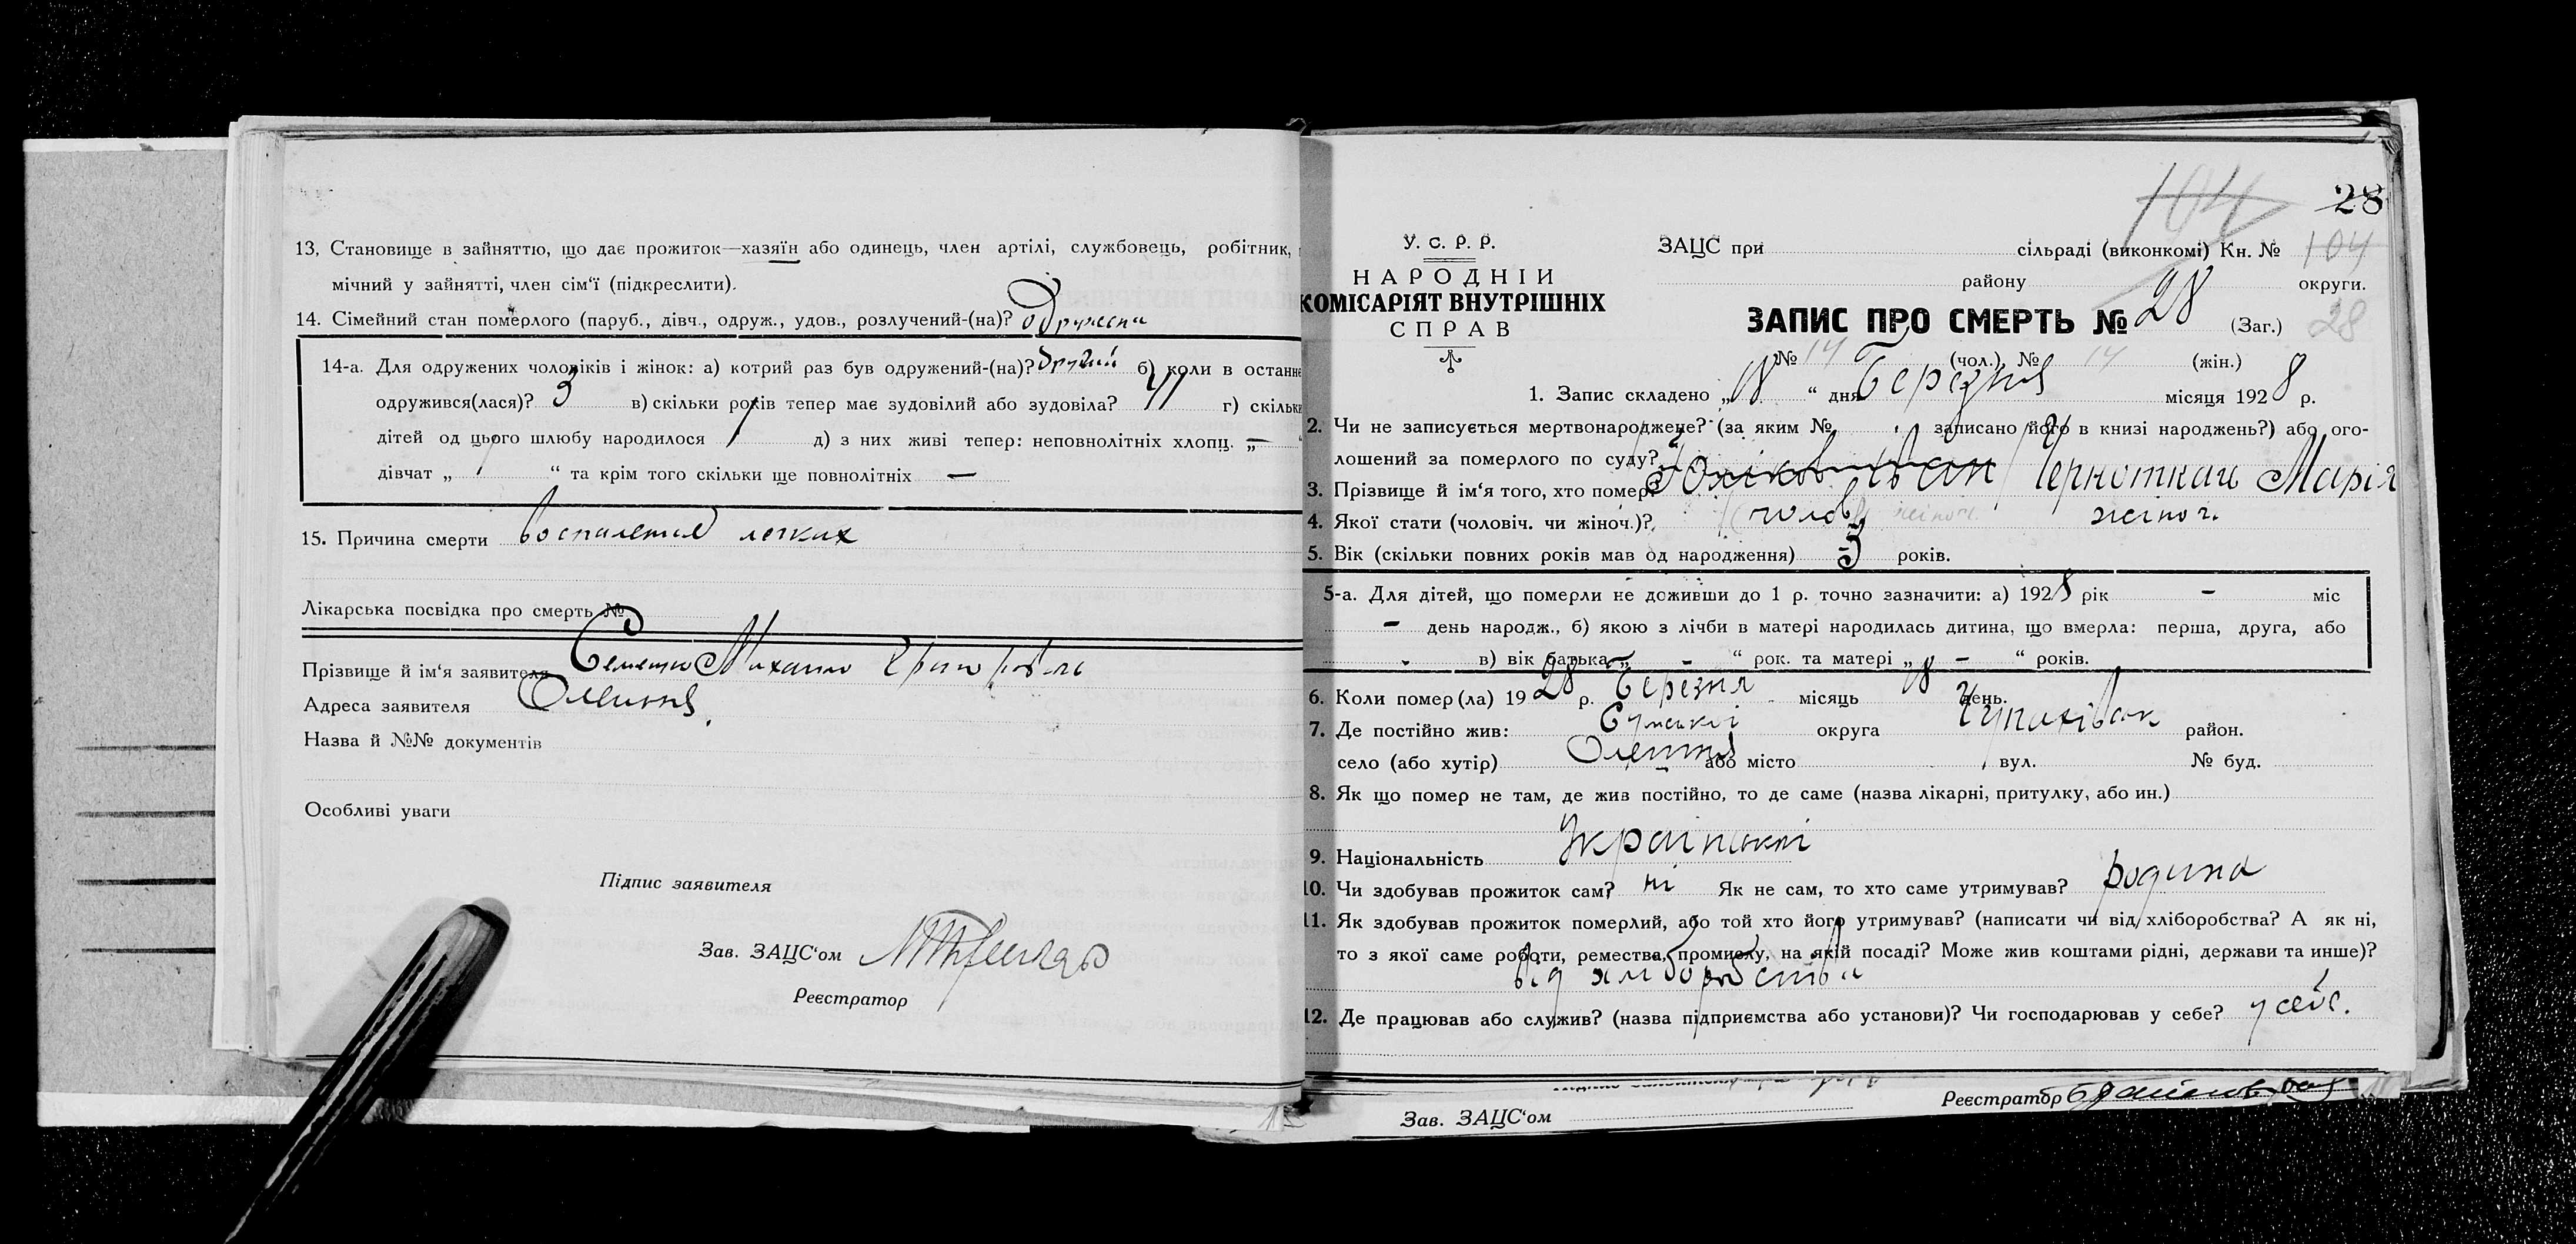 13, Становище в зайняттю, що дає прожиток—хазяїн або одинець, член артілі, службовець, робітник,
мічний у зайнятті, член сім'ї (підкреслити).
14. Сімейний стан померлого (паруб., дівч., одруж., удов., розлучений-(на)?
14-а. Для одружених чоловіків і жінок: а) котрий раз був одружений-(на)? другий б) коли в останнє
одружився(лася)? 3 в) скільки років тепер має зудовілий або зудовіла? 41 г) скільки
дітей од цього шлюбу народилося 1 д) з них живі тепер: неповнолітніх хлопц. „ —
дівчат „ 1 “ та крім того скільки ще повнолітніх —
15. Причина смерти воспаления легких
Лікарська посвідка про смерть №
Прізвище й ім'я заявителя Семенко Михайло
Адреса заявителя
Назва й №№ документів
Особливі уваги
Підпис заявителя
Зав. ЗАЦС'ом
Реєстратор
104
28
У. С. Р. Р.
НАРОДНІЙ
КОМІСАРІЯТ ВНУТРІШНІХ
СПРАВ
ЗАЦС при сільраді (виконкомі) Кн. № 104
району округи.
ЗАПИС ПРО СМЕРТЬ № 28 (Заг.) 28
№ 14 (чол.), № 14 (жін.)
1. Запис складено „ 18 “ дня Березня місяця 1928 р.
2. Чи не записується мертвонароджене? (за яким № записано його в книзі народжень?) або ого-
лошений за померлого по суду?
3. Прізвище й ім'я того, хто помер? Іван Чорноткач Марія
4. Якої стати (чоловіч. чи жіноч.)? чолов жіноч. жіноч.
5. Вік (скільки повних років мав од народження) 3 років.
5-а. Для дітей, що померли не доживши до 1 р. точно зазначити: а) 1928 рік – міс
– день народж., б) якою з лічби в матері народилась дитина, що вмерла: перша, друга, або
- в) вік батька „ – “ рок. та матері „ – “ років.
6. Коли помер(ла) 1928 р. Березня місяць 18 день.
7. Де постійно жив: Сумської округа Чупахівськ район.
село (або хутір) або місто вул. № буд.
8. Як що помер не там, де жив постійно, то де саме (назва лікарні, притулку, або ин.)
9. Національність Української
10. Чи здобував прожиток сам? ні Як не сам, то хто саме утримував? родина
11. Як здобував прожиток померлий, або той хто його утримував? (написати чи від хліборобства? А як ні,
то з якої саме роботи, ремества, промислу, на якій посаді? Може жив коштами рідні, держави та инше)?
від хліборобства
12. Де працював або служив? (назва підприємства або установи)? Чи господарював у себе? у себе.
Зав. ЗАЦС'ом
Реєстратор